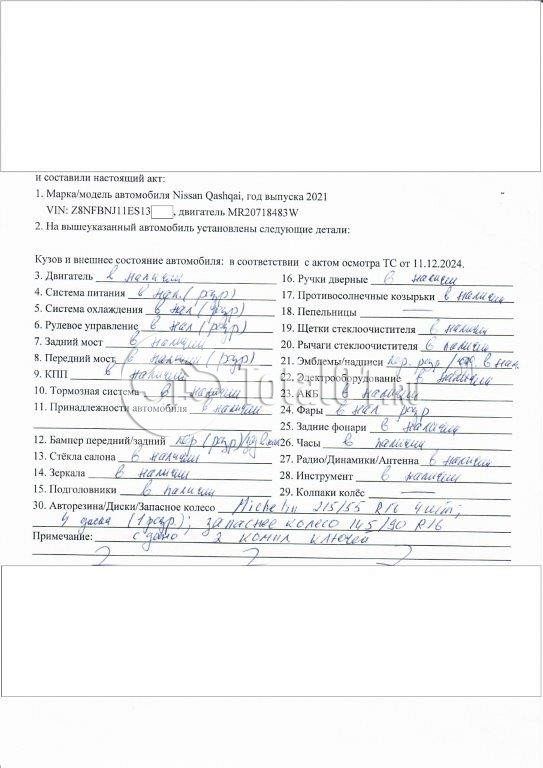 и составили настоящий акт:
1. Марка/модель автомобиля Nissan Qashqai, год выпуска 2021
VIN: Z8NFBNJ11ES13, двигатель MR20718483W
2. На вышеуказанный автомобиль установлены следующие детали:
Кузов и внешнее состояние автомобиля: в соответствии с актом осмотра ТС от 11.12.2024.
3. Двигатель в наличии
4. Система питания в нал (разр)
5. Система охлаждения в нал (разр)
6. Рулевое управление в нал (разр)
7. Задний мост в наличии
8. Передний мост в наличии (разр)
9. КПП в наличии
10. Тормозная система в наличии
11. Принадлежности автомобиля в наличии
12. Бампер передний/задний пер (разр)
13. Стёкла салона в наличии
14. Зеркала в наличии
15. Подголовники в наличии
16. Ручки дверные в наличии
17. Противосолнечные козырьки в наличии
18. Пепельницы —
19. Щетки стеклоочистителя в наличии
20. Рычаги стеклоочистителя в наличии
21. Эмблемы/надписи пер. разр / в нал.
22. Электрооборудование в наличии
23. АКБ в наличии
24. Фары в нал разр
25. Задние фонари в наличии
26. Часы в наличии
27. Радио/Динамики/Антенна в наличии
28. Инструмент в наличии
29. Колпаки колёс —
30. Авторезина/Диски/Запасное колесо Michelin 215/55 R16 4 шт;
4 диска (1 разр); запасное колесо 145/90 R16
Примечание: сдано 2 компл ключей
Total01.ru